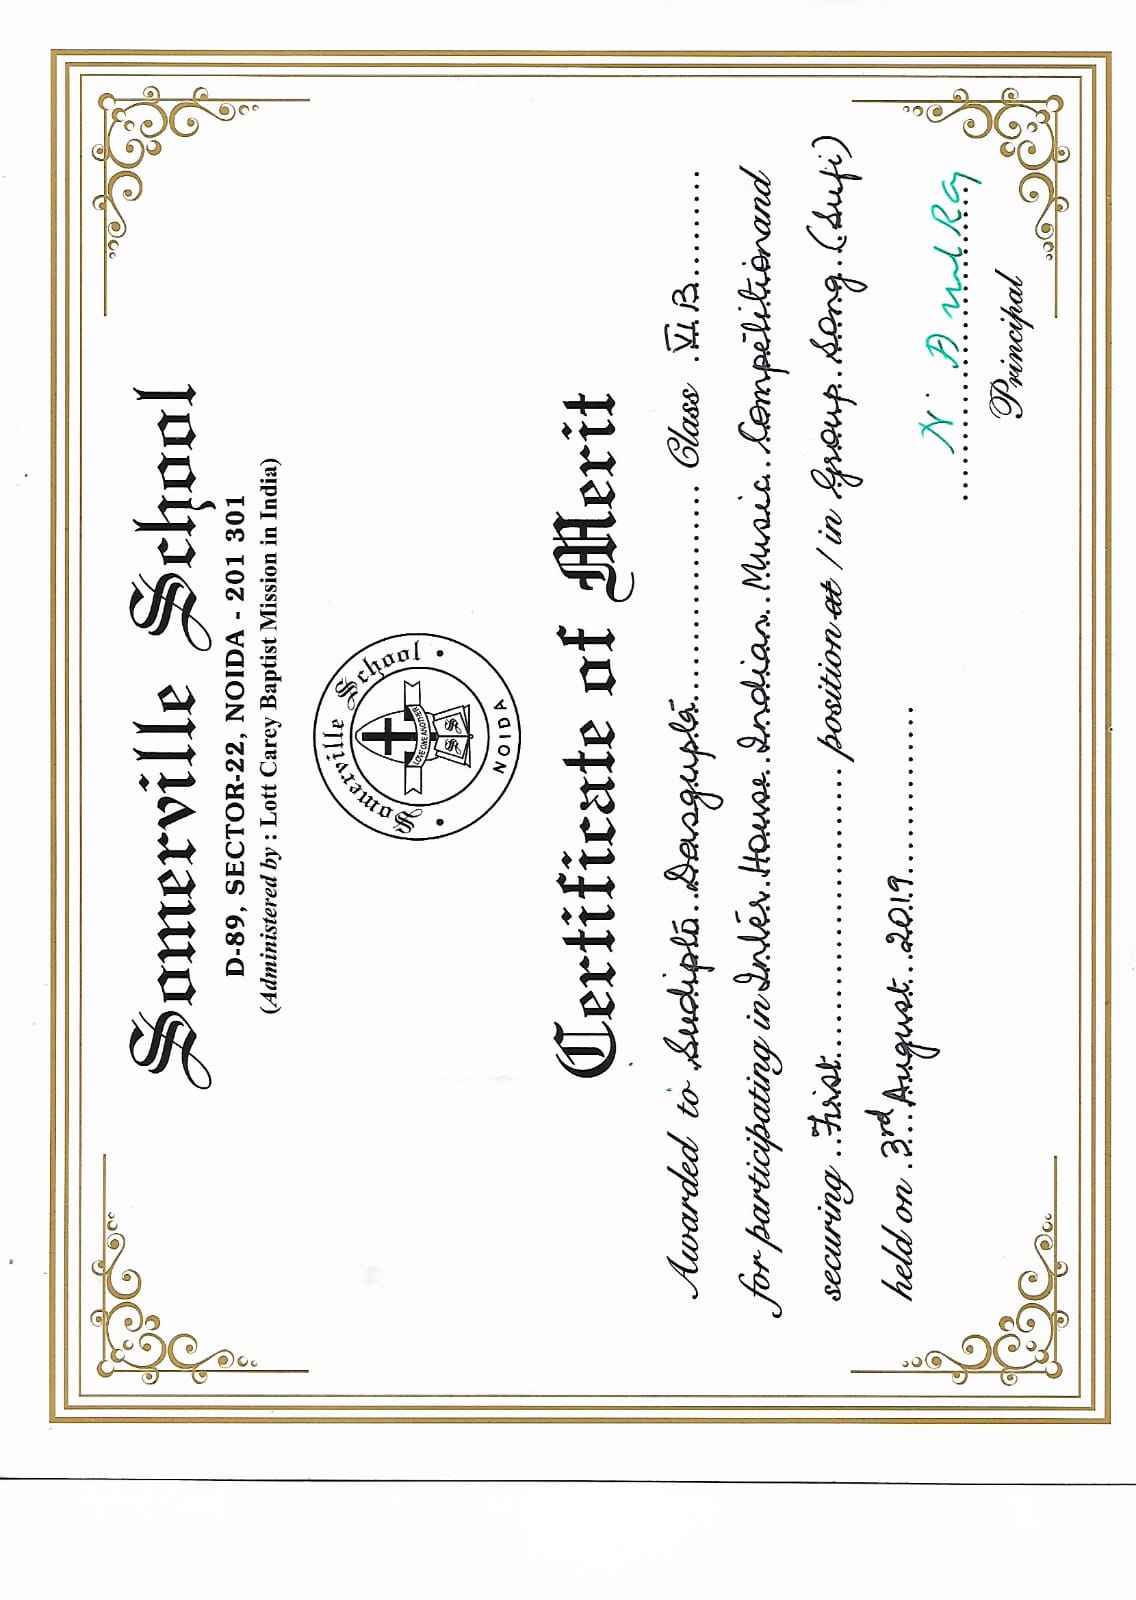 Somerville School
D-89, SECTOR-22, NOIDA - 201 301
(Administered by : Lott Carey Baptist Mission in India)
Somerville School
LOVE ONE ANOTHER
S S
NOIDA
Certificate of Merit
Awarded to Sudipta Dasgupta Class VI B
for participating in Inter House Indian Music Competition and
securing First position at / in Group Song (Sufi)
held on 3rd August 2019
Principal